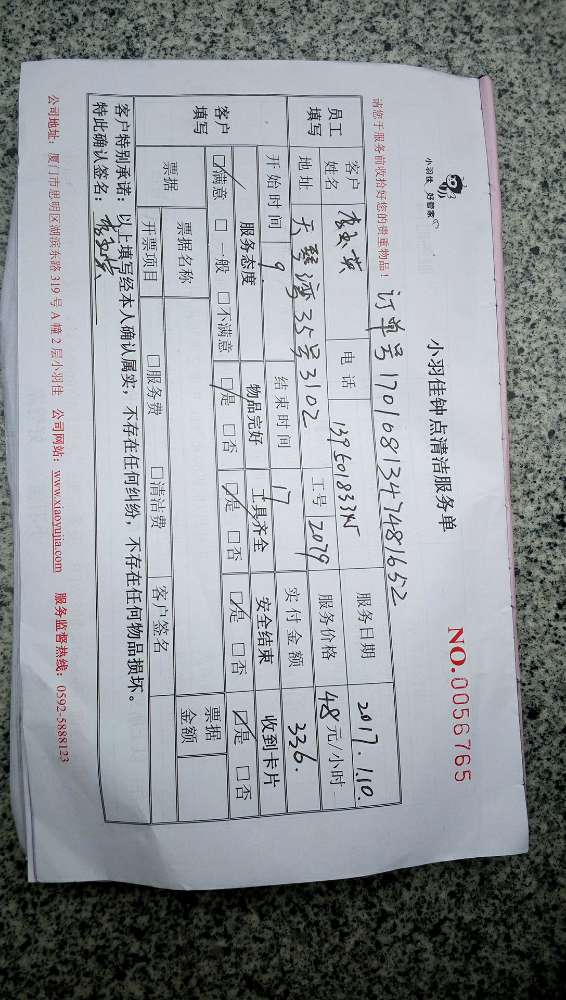 小羽佳 好管家
小羽佳钟点清洁服务单
NO.0056765
请您于服务前收拾好您的贵重物品！
订单号 1701081347481652
员工填写 客户姓名 电话 服务日期 2017.1.10.
地址 35号3102 工号 2079 服务价格 48元/小时
客户填写 开始时间 9 结束时间 17 实付金额 336.
服务态度 物品完好 工具齐全 安全结束 收到卡片
☑满意 □一般 □不满意 ☑是 □否 ☑是 □否 ☑是 □否 ☑是 □否
票据 票据名称 票据金额
开票项目 □服务费 □清洁费 客户签名
客户特别承诺：以上填写经本人确认属实，不存在任何纠纷，不存在任何物品损坏。
特此确认签名：
公司地址：厦门市思明区湖滨东路319号A幢2层小羽佳 公司网站：www.xiaoyujia.com 服务监督热线：0592-5888123